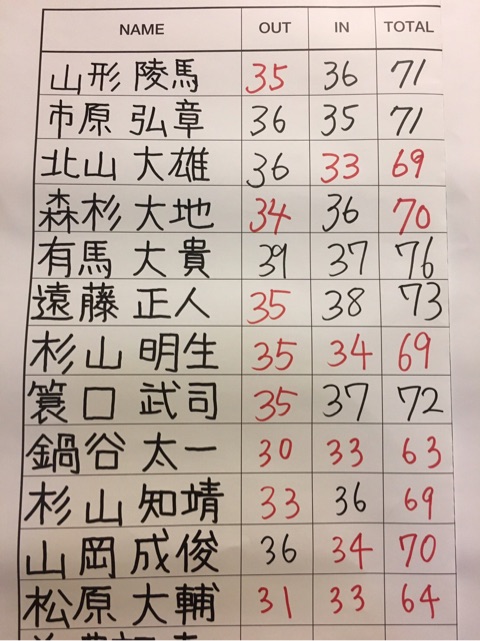 NAME OUT IN TOTAL
山形 陵馬 35 36 71
市原 弘章 36 35 71
北山 大雄 36 33 69
森杉 大地 34 36 70
有馬 大貴 39 37 76
遠藤 正人 35 38 73
杉山 明生 35 34 69
簑口 武司 35 37 72
鍋谷 太一 30 33 63
杉山 知靖 33 36 69
山岡 成俊 36 34 70
松原 大輔 31 33 64